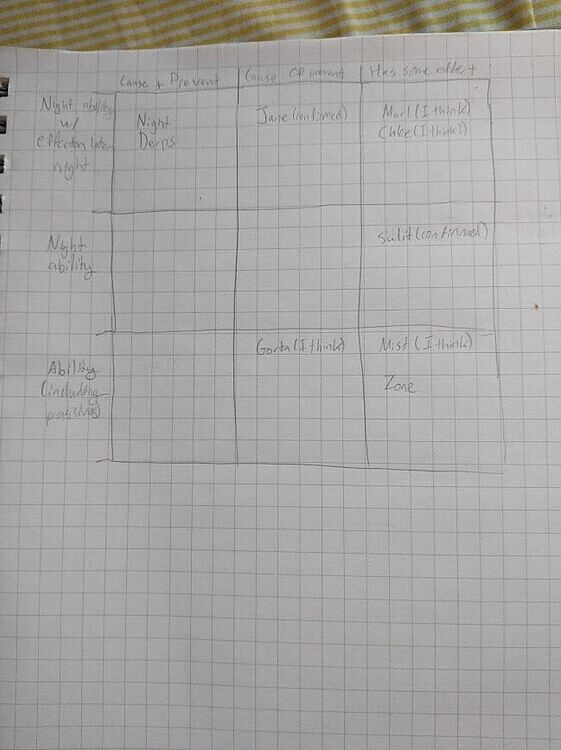 Cause + Prevent
Cause OR prevent
Has some effect
Night ability
w/
effect on later
night
Night
Derps
Jane (confirmed)
Marl (I think)
Chloe (I think)
Night
ability
Salit (confirmed)
Ability
(including
passives)
Gorta (I think)
Mist (I think)
Zone